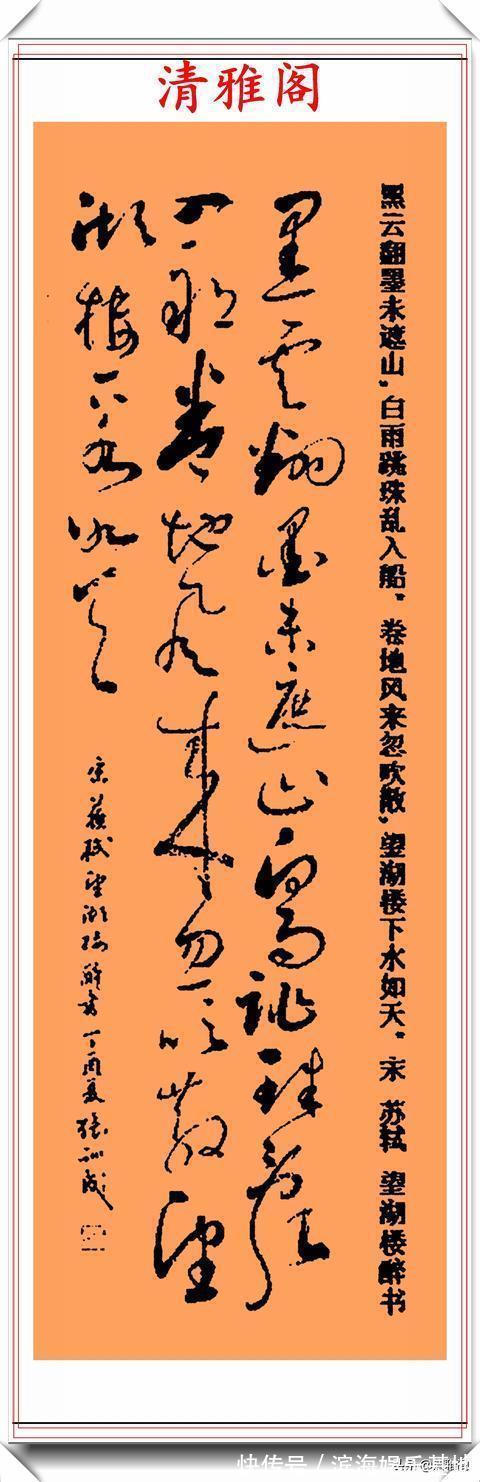 清雅阁
黑云翻墨未遮山,白雨跳珠乱入船。卷地风来忽吹散,望湖楼下水如天。宋 苏轼 望湖楼醉书
黑云翻墨未遮山白雨跳珠乱
入船卷地风来忽吹散望
湖楼下水如天
宋苏轼望湖楼醉书丁酉夏张训成
快传号 / 滨海娱乐基地